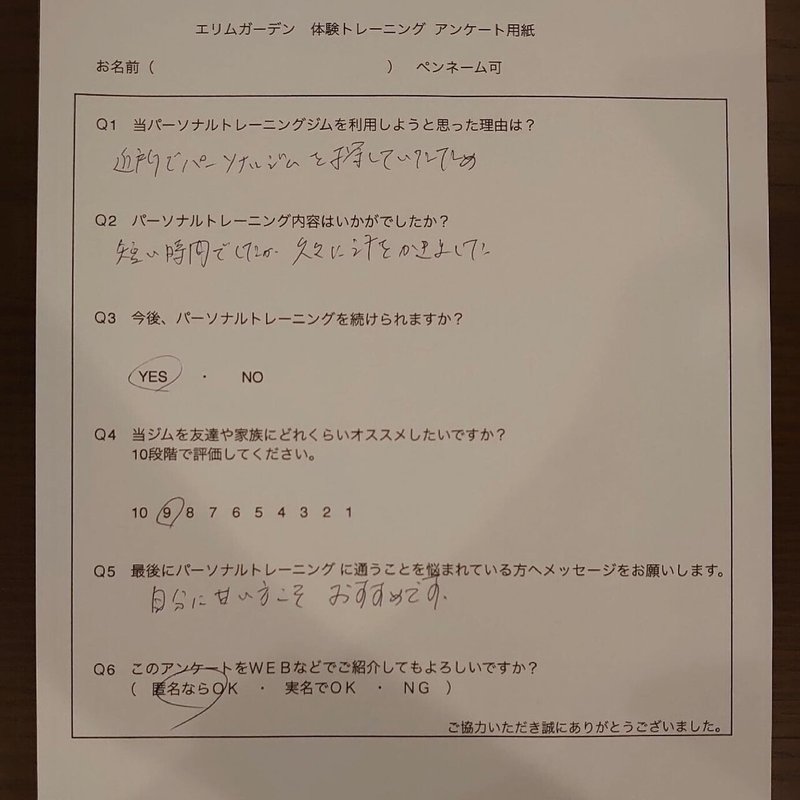 エリムガーデン　体験トレーニング アンケート用紙
お名前（　　　　　　　　　　）　ペンネーム可
Q1　当パーソナルトレーニングジムを利用しようと思った理由は？
近所でパーソナルジムを探していたため
Q2　パーソナルトレーニング内容はいかがでしたか？
短い時間でしたが 久々に汗をかきました
Q3　今後、パーソナルトレーニングを続けられますか？
YES　・　NO
Q4　当ジムを友達や家族にどれくらいオススメしたいですか？
10段階で評価してください。
10　9　8　7　6　5　4　3　2　1
Q5　最後にパーソナルトレーニング に通うことを悩まれている方へメッセージをお願いします。
自分に甘い方こそ おすすめです.
Q6　このアンケートをＷＥＢなどでご紹介してもよろしいですか？
（　匿名ならＯＫ　・　実名でＯＫ　・　ＮＧ　）
ご協力いただき誠にありがとうございました。